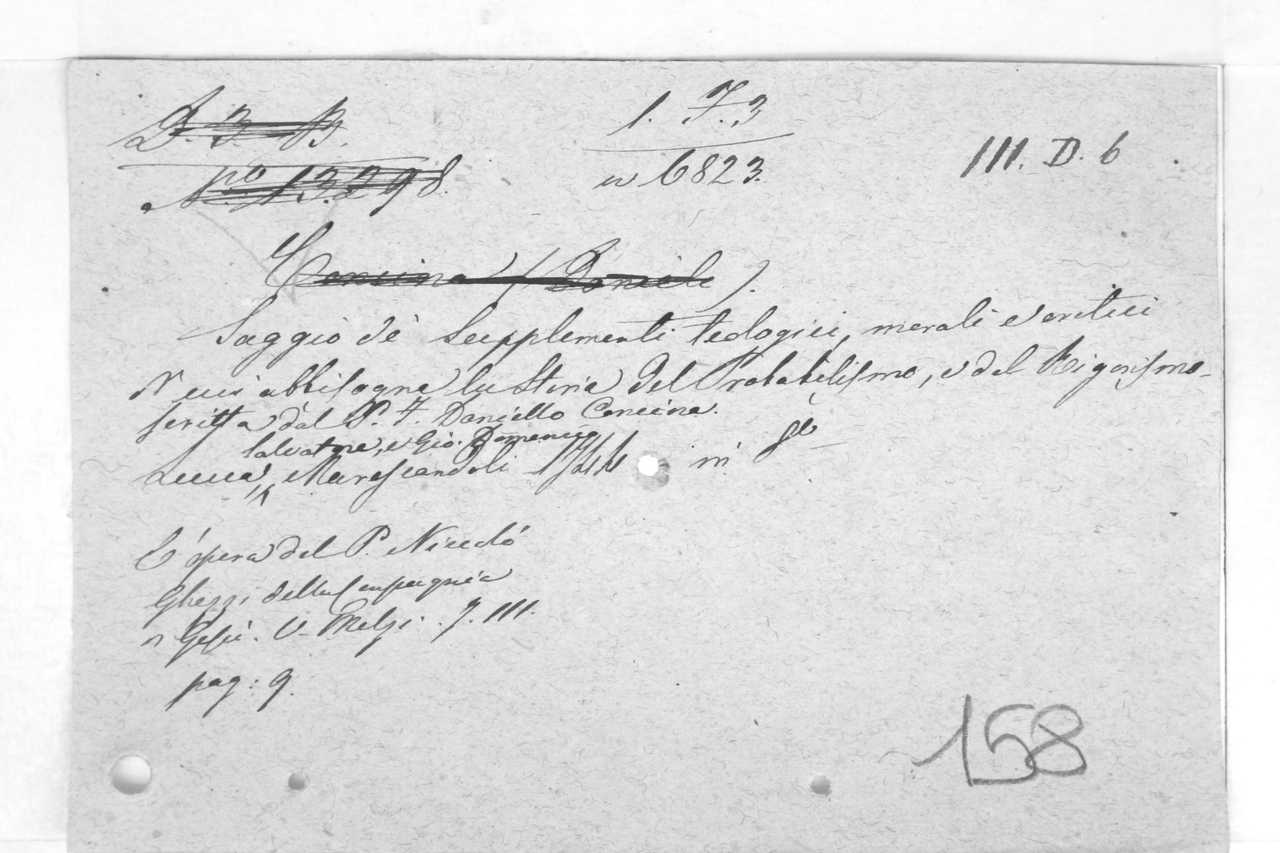 D. 3. B.
No 13298.
1. F. 3
n 6823.
III. D. 6
Concina (Daniele).
Saggio de' Supplementi teologici, morali e critici
di cui abbisogna la Storia del Probabilismo, e del Rigorismo
scritta dal P. F. Daniello Concina.
Salvatore, e Gio. Domenico
Lucca, Marescandoli 1744 in 8o
È opera del P. Niccolò
Ghezzi della Compagnia
di Gesù. V. Melzi. T. III.
pag: 9.
158